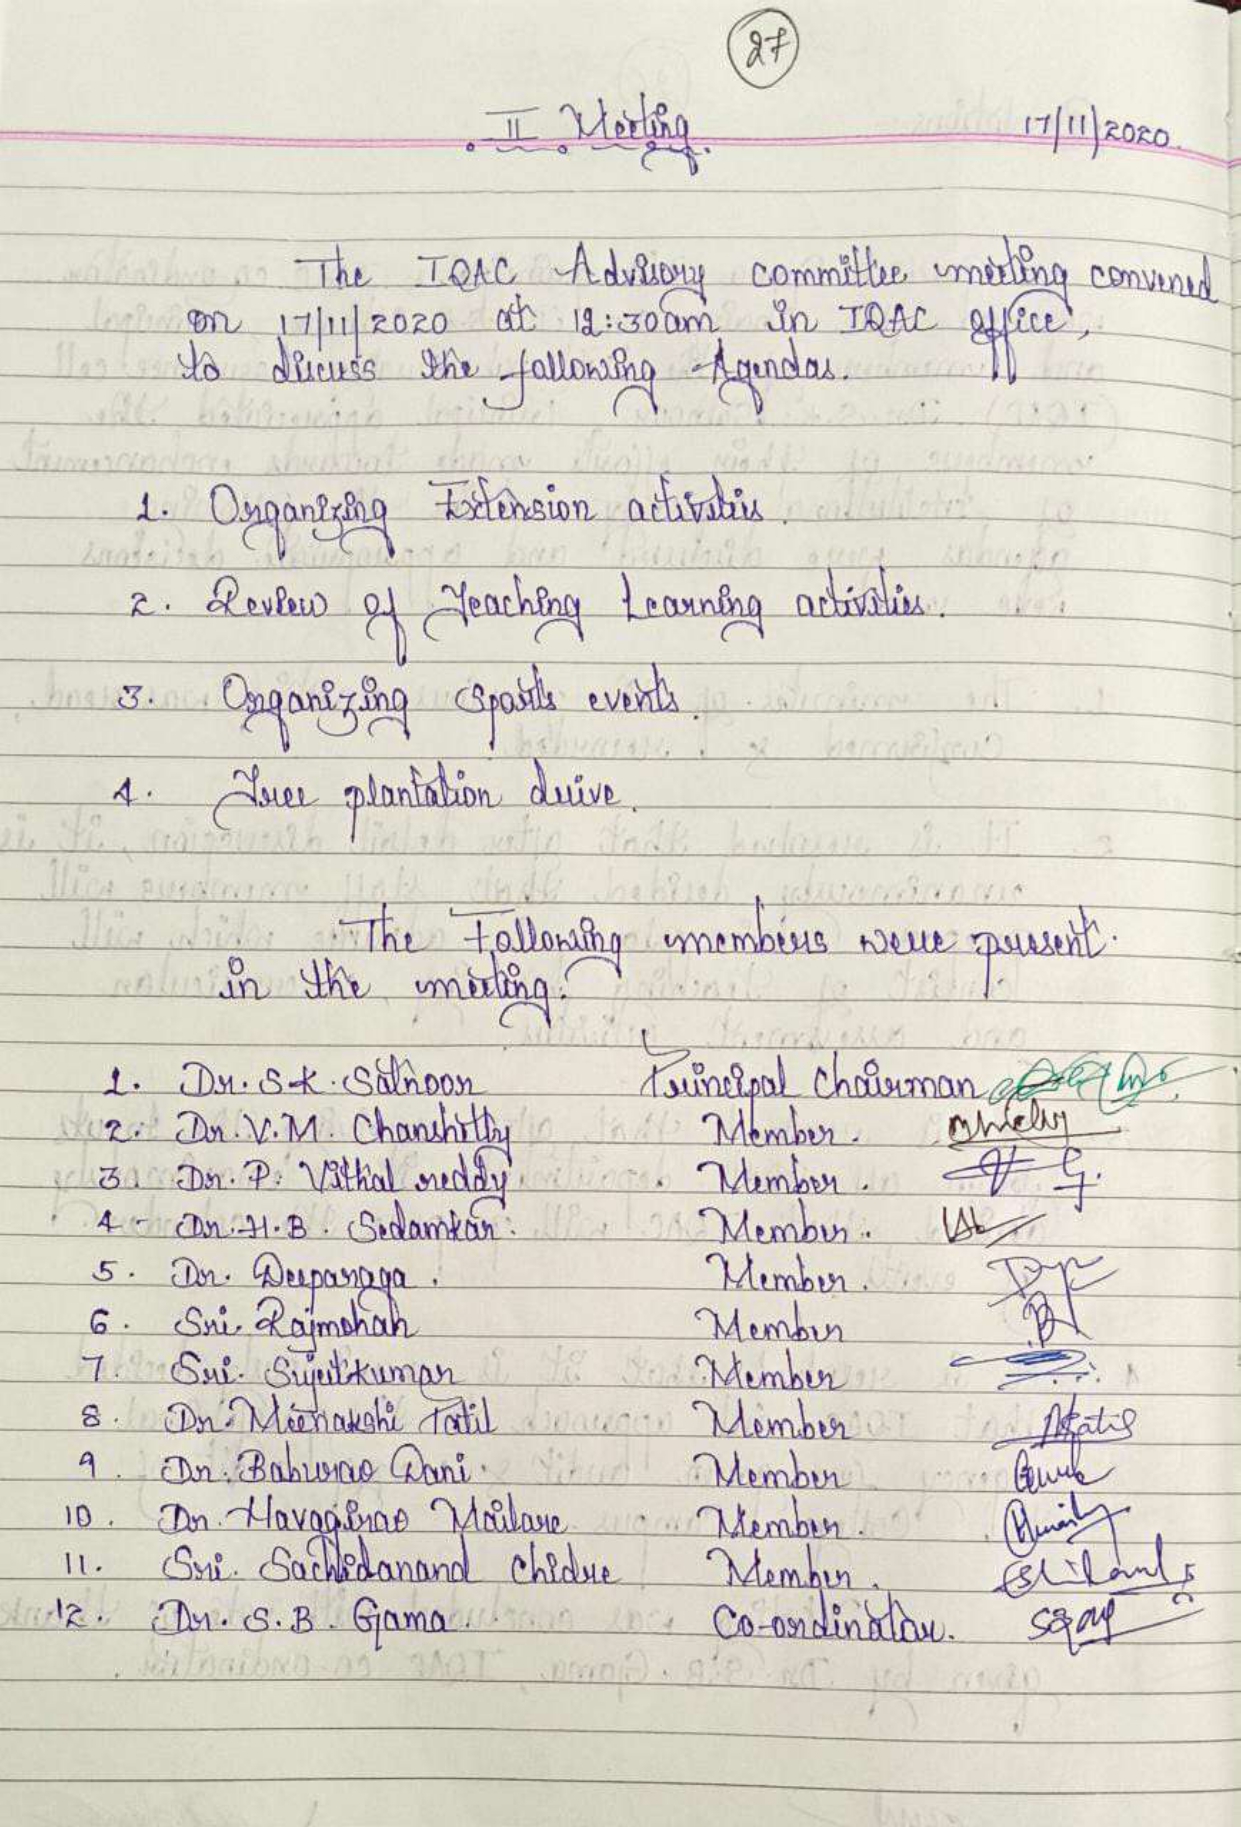 27
II Meeting 17/11/2020.
The IQAC Advisory committee meeting convened
on 17/11/2020 at 12:30am in IQAC office,
to discuss the following Agendas.
1. Organizing Extension activities.
2. Review of Teaching Learning activities.
3. Organizing sports events.
4. Tree plantation drive.
The Following members were present
in the meeting.
1. Dr. S.K. Satnoor Principal Chairman
2. Dr. V.M. Chanshetty Member.
3 Dr. P. Vithal reddy Member.
4 - Dr. H.B. Sedamkar. Member.
5. Dr. Deeparaga. Member.
6. Sri. Rajmohan Member
7. Sri. Sujeetkumar Member
8. Dr. Meenakshi Patil Member
9. Dr. Baburao Dani. Member
10. Dr. Havagirao Mailare Member.
11. Sri. Sachidanand Chidre Member.
12. Dr. S.B. Gama. Co-ordinator.